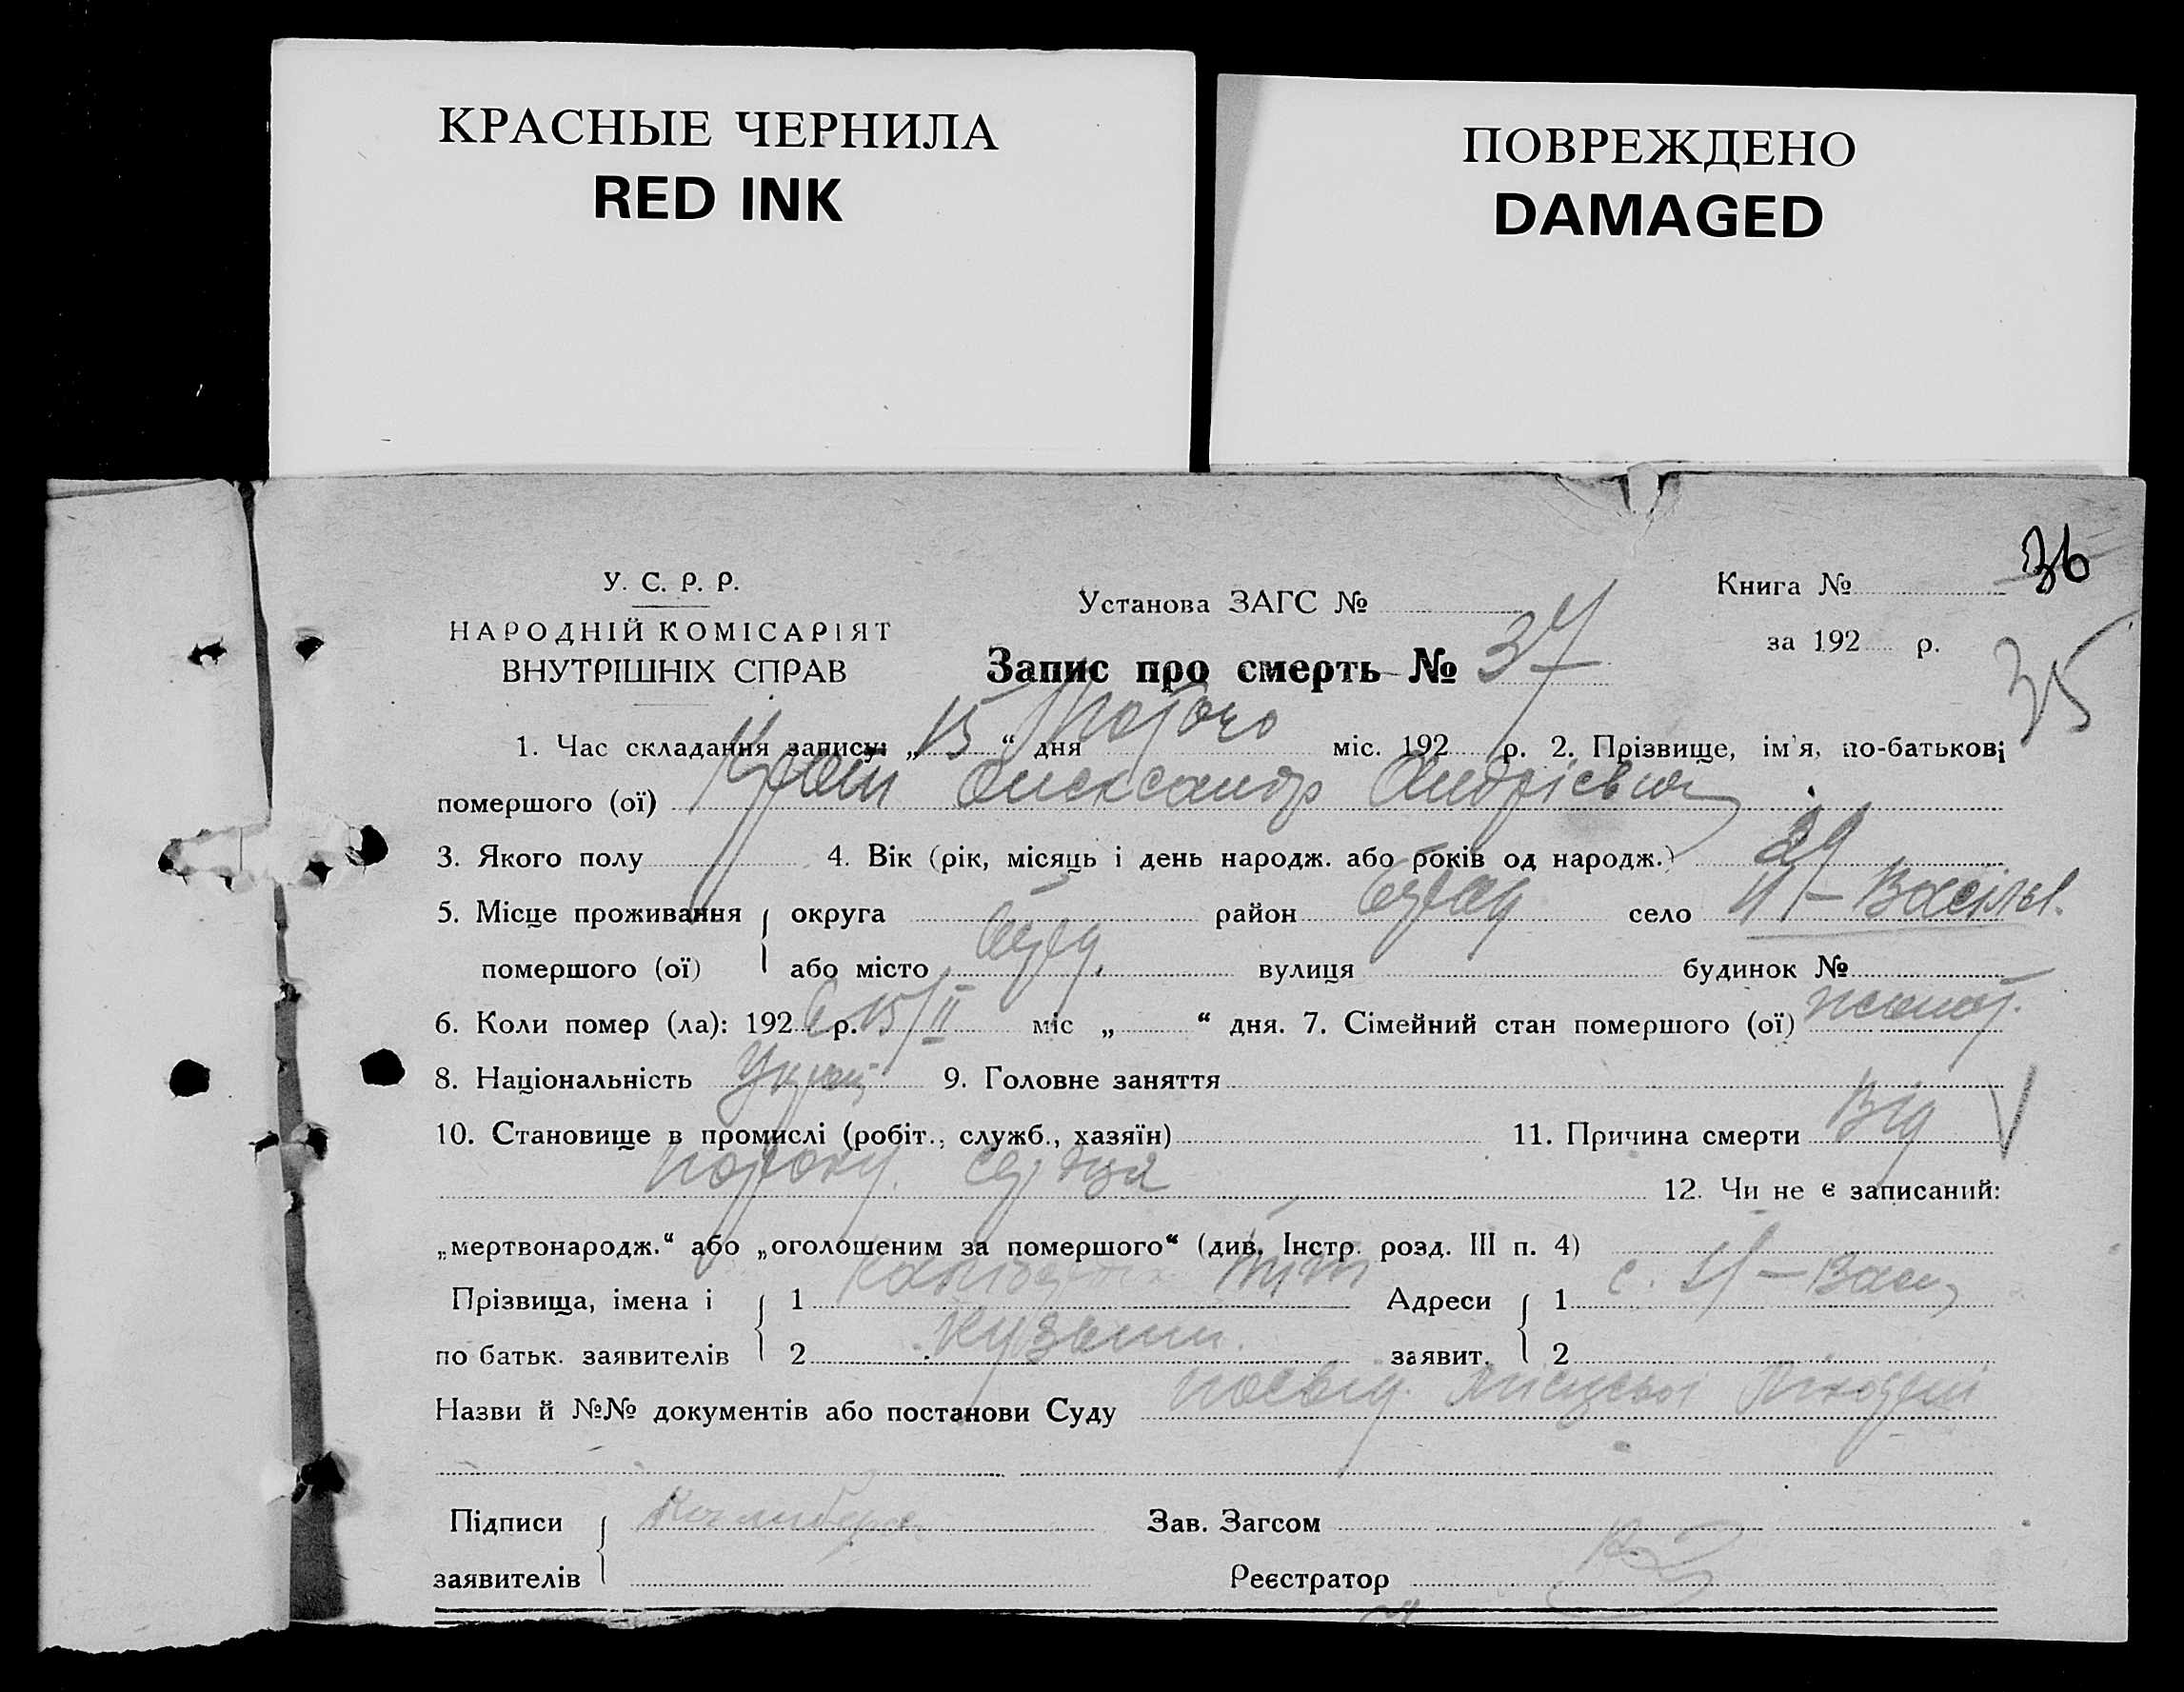 КРАСНЫЕ ЧЕРНИЛА
RED INK
ПОВРЕЖДЕНО
DAMAGED
36
У. С. Р. Р.
НАРОДНІЙ КОМІСАРІЯТ
ВНУТРІШНІХ СПРАВ
Установа ЗАГС №
Запис про смерть № 37
Книга №
за 192 р.
35
1. Час складання запису: „15“ дня Лютого міс. 192 р. 2. Прізвище, ім'я, по-батькові
помершого (ої) Олександр Андрієвич
3. Якого полу 4. Вік (рік, місяць і день народж. або років од народж.) 29
5. Місце проживання округа район село Н-Васільв.
помершого (ої) або місто вулиця будинок №
6. Коли помер (ла): 1926 р. 15/II міс „ “ дня. 7. Сімейний стан помершого (ої) жонат.
8. Національність Украй 9. Головне заняття
10. Становище в промислі (робіт., служб., хазяїн) 11. Причина смерти Від
пороку сердця 12. Чи не є записаний:
„мертвонародж.“ або „оголошеним за помершого“ (див. Інстр. розд. III п. 4)
Прізвища, імена і 1 Тіт Адреси 1 с. Н-Васи
по батьк. заявителів 2 Кузьмич. заявит. 2
Назви й №№ документів або постанови Суду посвід.
Підписи Зав. Загсом
заявителів Реєстратор